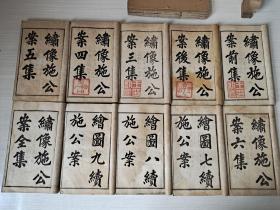 繡像施公
案前集
繡像施公
案後集
繡像施公
案三集
繡像施公
案四集
繡像施公
案五集
繡像施公
案六集
繪圖七續
施公案
繪圖八續
施公案
繪圖九續
施公案
繡像施公
案全集